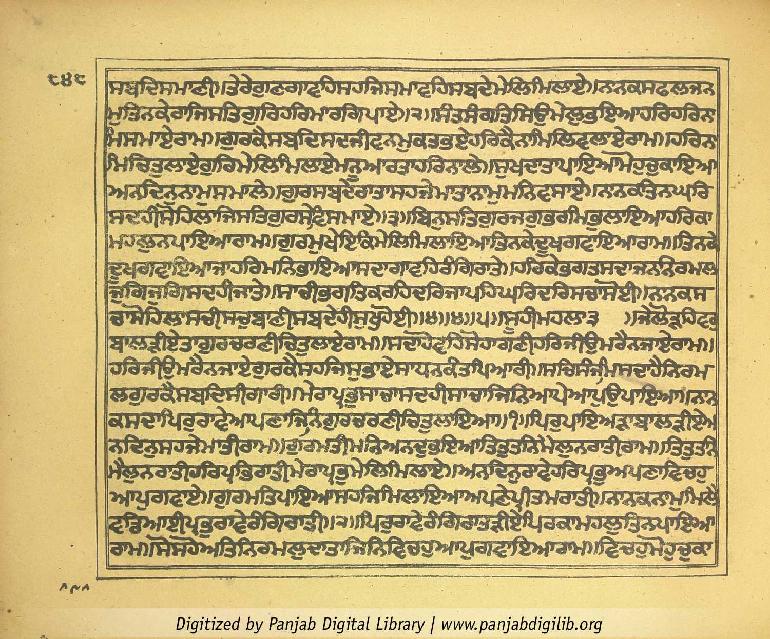 ੮੪੮
ਸਬਦਿਸਮਾਣੀ॥ਤੇਰੇਗੁਣਗਾਵਹਿਸਹਜਿਸਮਾਵਹਿਸਬਦੇਮੇਲਿਮਿਲਾਏ॥ਨਾਨਕਸਫਲਜਨ
ਮੁਤਿਨਕੇਰਾਜਿਸਤਿਗੁਰਿਹਰਿਮਾਰਗਿਪਾਏ॥੨॥ਸੰਤਸੰਗਤਿਸਿਉਮੇਲੁਭਇਆਹਰਿਹਰਿਨਾ
ਮਿਸਮਾਏਰਾਮ॥ਗੁਰਕੈਸਬਦਿਸਦਜੀਵਨਮੁਕਤਭਏਹਰਿਕੈਨਾਮਿਲਿਵਲਾਏਰਾਮ॥ਹਰਿਨਾ
ਮਿਚਿਤੁਲਾਏਗੁਰਿਮੇਲਿਮਿਲਾਏਮਨੂਆਰਤਾਹਰਿਨਾਲੇ॥ਸੁਖਦਾਤਾਪਾਇਆਮੋਹੁਚੁਕਾਇਆ
ਅਨਦਿਨੁਨਾਮੁਸਮਾਲੇ॥ਗੁਰਸਬਦੇਰਾਤਾਸਹਜੇਮਾਤਾਨਾਮੁਮਨਿਵਸਾਏ॥ਨਾਨਕਤਿਨਘਰਿ
ਸਦਹੀਸੋਹਿਲਾਜਿਸਤਿਗੁਰਸੇਵਿਸਮਾਏ॥੩॥ਬਿਨੁਸਤਿਗੁਰਜਗੁਭਰਮਿਭੁਲਾਇਆਹਰਿਕਾ
ਮਹਲੁਨਪਾਇਆਰਾਮ॥ਗੁਰਮੁਖੇਇਕਿਮੇਲਿਮਿਲਾਇਆਤਿਨਕੇਦੂਖਗਵਾਇਆਰਾਮ॥ਤਿਨਕੇ
ਦੂਖਗਵਾਇਆਜਾਹਰਿਮਨਿਭਾਇਆਸਦਾਗਾਵਹਿਰੰਗਿਰਾਤੇ॥ਹਰਿਕੇਭਗਤਸਦਾਜਨਨਿਰਮਲ
ਜੁਗਿਜੁਗਿਸਦਹੀਜਾਤੇ॥ਸਾਚੀਭਗਤਿਕਰਹਿਦਰਿਜਾਪਹਿਘਰਿਦਰਿਸਚਾਸੋਈ॥ਨਾਨਕਸ
ਚਾਸੋਹਿਲਾਸਚੀਸਚੁਬਾਣੀਸਬਦੇਹੀਸੁਖੁਹੋਈ॥੪॥੪॥੫॥ਸੂਹੀਮਹਲਾ੩ ॥ਜੇਲੋੜਹਿਵਰੁ
ਬਾਲੜੀਏਤਾਗੁਰਚਰਣੀਚਿਤੁਲਾਏਰਾਮ॥ਸਦਾਹੋਵਹਿਸੋਹਾਗਣੀਹਰਿਜੀਉਮਰੈਨਜਾਏਰਾਮ॥
ਹਰਿਜੀਉਮਰੈਨਜਾਏਗੁਰਕੈਸਹਜਿਸੁਭਾਏਸਾਧਨਕੰਤਪਿਆਰੀ॥ਸਚਿਸੰਜਮਿਸਦਾਹੈਨਿਰਮ
ਲਗੁਰਕੈਸਬਦਿਸੀਗਾਰੀ॥ਮੇਰਾਪ੍ਰਭੁਸਾਚਾਸਦਹੀਸਾਚਾਜਿਨਿਆਪੇਆਪੁਉਪਾਇਆ॥ਨਾਨ
ਕਸਦਾਪਿਰੁਰਾਵੇਆਪਣਾਜਿਨਿਗੁਰਚਰਣੀਚਿਤੁਲਾਇਆ॥੧॥ਪਿਰੁਪਾਇਅੜਾਬਾਲੜੀਏਅ
ਨਦਿਨੁਸਹਜੇਮਾਤੀਰਾਮ॥ਗੁਰਮਤੀਮਨਿਅਨਦੁਭਇਆਤਿਤੁਤਨਿਮੈਲੁਨਰਾਤੀਰਾਮ॥ਤਿਤੁਤਨਿ
ਮੈਲੁਨਰਾਤੀਹਰਿਪ੍ਰਭਿਰਾਤੀਮੇਰਾਪ੍ਰਭੁਮੇਲਿਮਿਲਾਏ॥ਅਨਦਿਨੁਰਾਵੇਹਰਿਪ੍ਰਭੁਅਪਣਾਵਿਚਹੁ
ਆਪੁਗਵਾਏ॥ਗੁਰਮਤਿਪਾਇਆਸਹਜਿਮਿਲਾਇਆਅਪਣੇਪ੍ਰੀਤਮਰਾਤੀ॥ਨਾਨਕਨਾਮੁਮਿਲੈ
ਵਡਿਆਈਪ੍ਰਭੁਰਾਵੇਰੰਗਿਰਾਤੀ॥੨॥ਪਿਰੁਰਾਵੇਰੰਗਿਰਾਤੜੀਏਪਿਰਕਾਮਹਲੁਤਿਨਪਾਇਆ
ਰਾਮ॥ਸੋਸਹੋਅਤਿਨਿਰਮਲੁਦਾਤਾਜਿਨਿਵਿਚਹੁਆਪੁਗਵਾਇਆਰਾਮ॥ਵਿਚਹੁਮੋਹੁਚੁਕਾ
Digitized by Panjab Digital Library | www.panjabdigilib.org